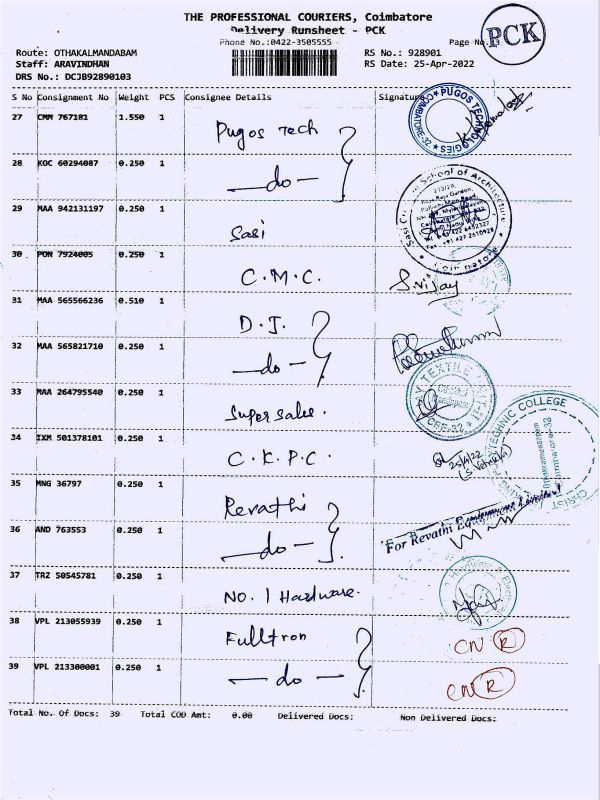 THE PROFESSIONAL COURIERS, Coimbatore
Delivery Runsheet - PCK
Phone No.:0422-3505555
Page No.
PCK
Route: OTHAKALMANDABAM
RS No.: 928901
Staff: ARAVINDHAN
RS Date: 25-Apr-2022
DRS No.: DCJB92890103
S No Consignment No Weight PCS Consignee Details Signature
27 CMM 767181 1.550 1 Pugos Tech
PUGOS TECHNOLOGIES
COIMBATORE-32
28 KOC 60294087 0.250 1 —do—
29 MAA 942131197 0.250 1 Sasi
School of Architecture
30 PON 7924005 0.250 1 C.M.C. S.Vijay
31 MAA 565566236 0.510 1 D.J.
32 MAA 565821710 0.250 1 —do—
33 MAA 264795540 0.250 1 Super Sales.
TEXTILE
34 IXM 501378101 0.250 1 C.K.P.C. 25/4/22
COLLEGE
35 MNG 36797 0.250 1 Revathi
For Revathi Equipment Limited
36 AND 763553 0.250 1 —do—
37 TRZ 50545781 0.250 1 No. 1 Hardware.
38 VPL 213055939 0.250 1 Fulltron CN R
39 VPL 213300001 0.250 1 —do— CN R
Total No. Of Docs: 39 Total COD Amt: 0.00 Delivered Docs: Non Delivered Docs: